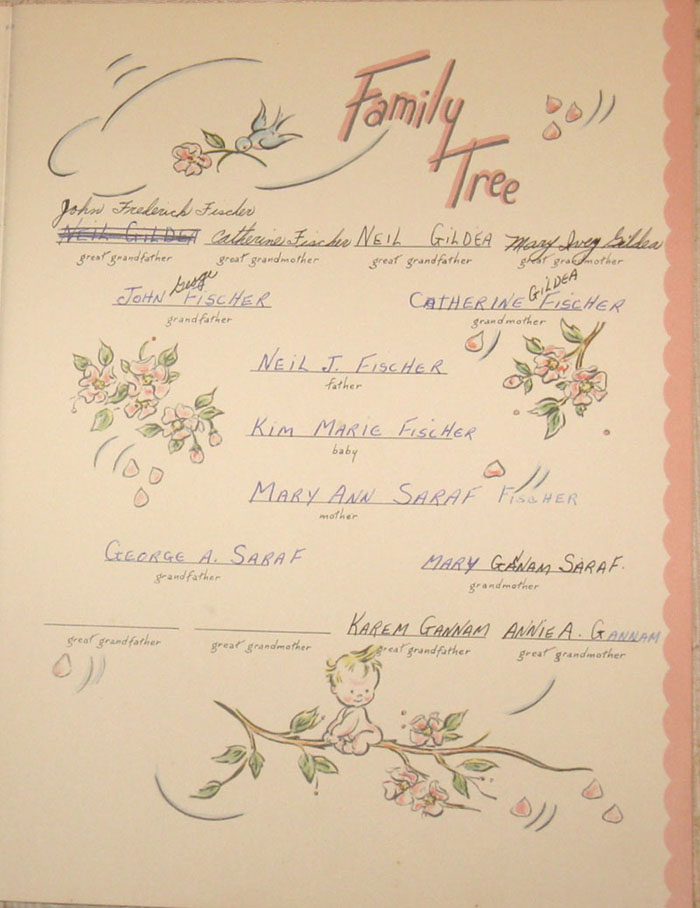 Family
Tree
John Frederick Fischer
NEIL GILDEA Catherine Fischer NEIL GILDEA Mary Ivey Gildea
great grandfather great grandmother great grandfather great grandmother
George GILDEA
JOHN FISCHER CATHERINE FISCHER
grandfather grandmother
NEIL J. FISCHER
father
KIM MARIE FISCHER
baby
MARY ANN SARAF FISCHER
mother
GEORGE A. SARAF MARY GANAM SARAF.
grandfather grandmother
KAREM GANNAM ANNIE A. GANNAM
great grandfather great grandmother great grandfather great grandmother